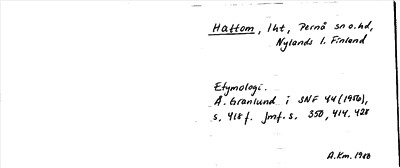 Hattom, lht, Pernå sn o. hd,
Nylands l. Finland
Etymologi.
Å. Granlund i SNF 44 (1956),
s. 418 f. Jmf. s. 350, 414, 428
A.Km. 1988